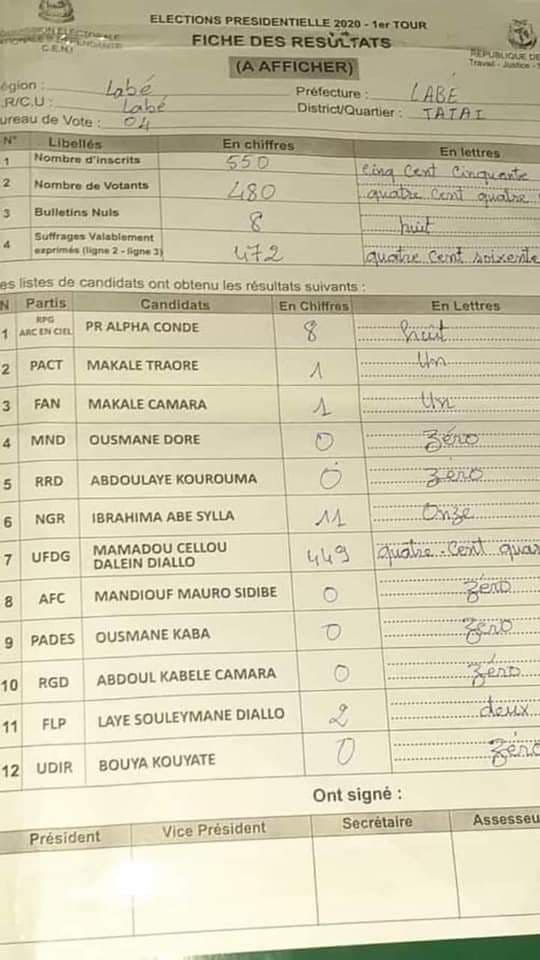 ELECTIONS PRESIDENTIELLE 2020 - 1er TOUR
C.E.N.I
FICHE DES RESULTATS
(A AFFICHER)
REPUBLIQUE DE
Travail - Justice -
égion : Labé
Préfecture : LABÉ
.R/C.U : Labé
District/Quartier : TATAI
ureau de Vote : 04
N° Libellés En chiffres En lettres
1 Nombre d'inscrits 550 cinq cent cinquante
2 Nombre de Votants 480 quatre cent quatre
3 Bulletins Nuls 8 huit
4 Suffrages Valablement exprimés (ligne 2 - ligne 3) 472 quatre cent soixante
es listes de candidats ont obtenu les résultats suivants :
N Partis Candidats En Chiffres En Lettres
1 RPG ARC EN CIEL PR ALPHA CONDE 8 huit
2 PACT MAKALE TRAORE 1 Un
3 FAN MAKALE CAMARA 1 Un
4 MND OUSMANE DORE 0 Zéro
5 RRD ABDOULAYE KOUROUMA 0 Zéro
6 NGR IBRAHIMA ABE SYLLA 11 Onze
7 UFDG MAMADOU CELLOU DALEIN DIALLO 449 quatre-cent quar
8 AFC MANDIOUF MAURO SIDIBE 0 Zéro
9 PADES OUSMANE KABA 0 Zéro
10 RGD ABDOUL KABELE CAMARA 0 Zéro
11 FLP LAYE SOULEYMANE DIALLO 2 deux
12 UDIR BOUYA KOUYATE 0 Zéro
Ont signé :
Président Vice Président Secrétaire Assesseu